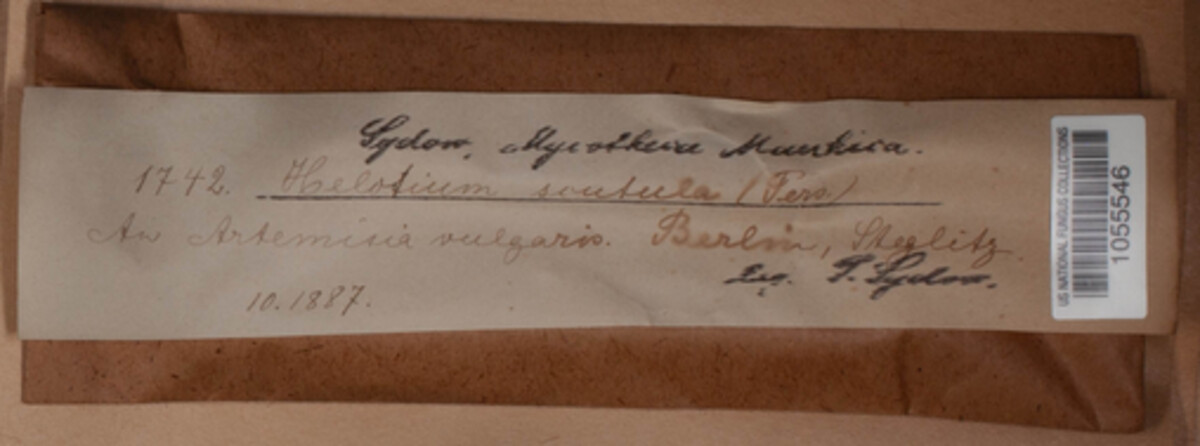 Sydow, Mycotheca Marchica.
1742. Helotium scutula (Pers.)
An Artemisia vulgaris. Berlin, Steglitz.
P. Sydow.
10.1887.
US NATIONAL FUNGUS COLLECTIONS
1055546